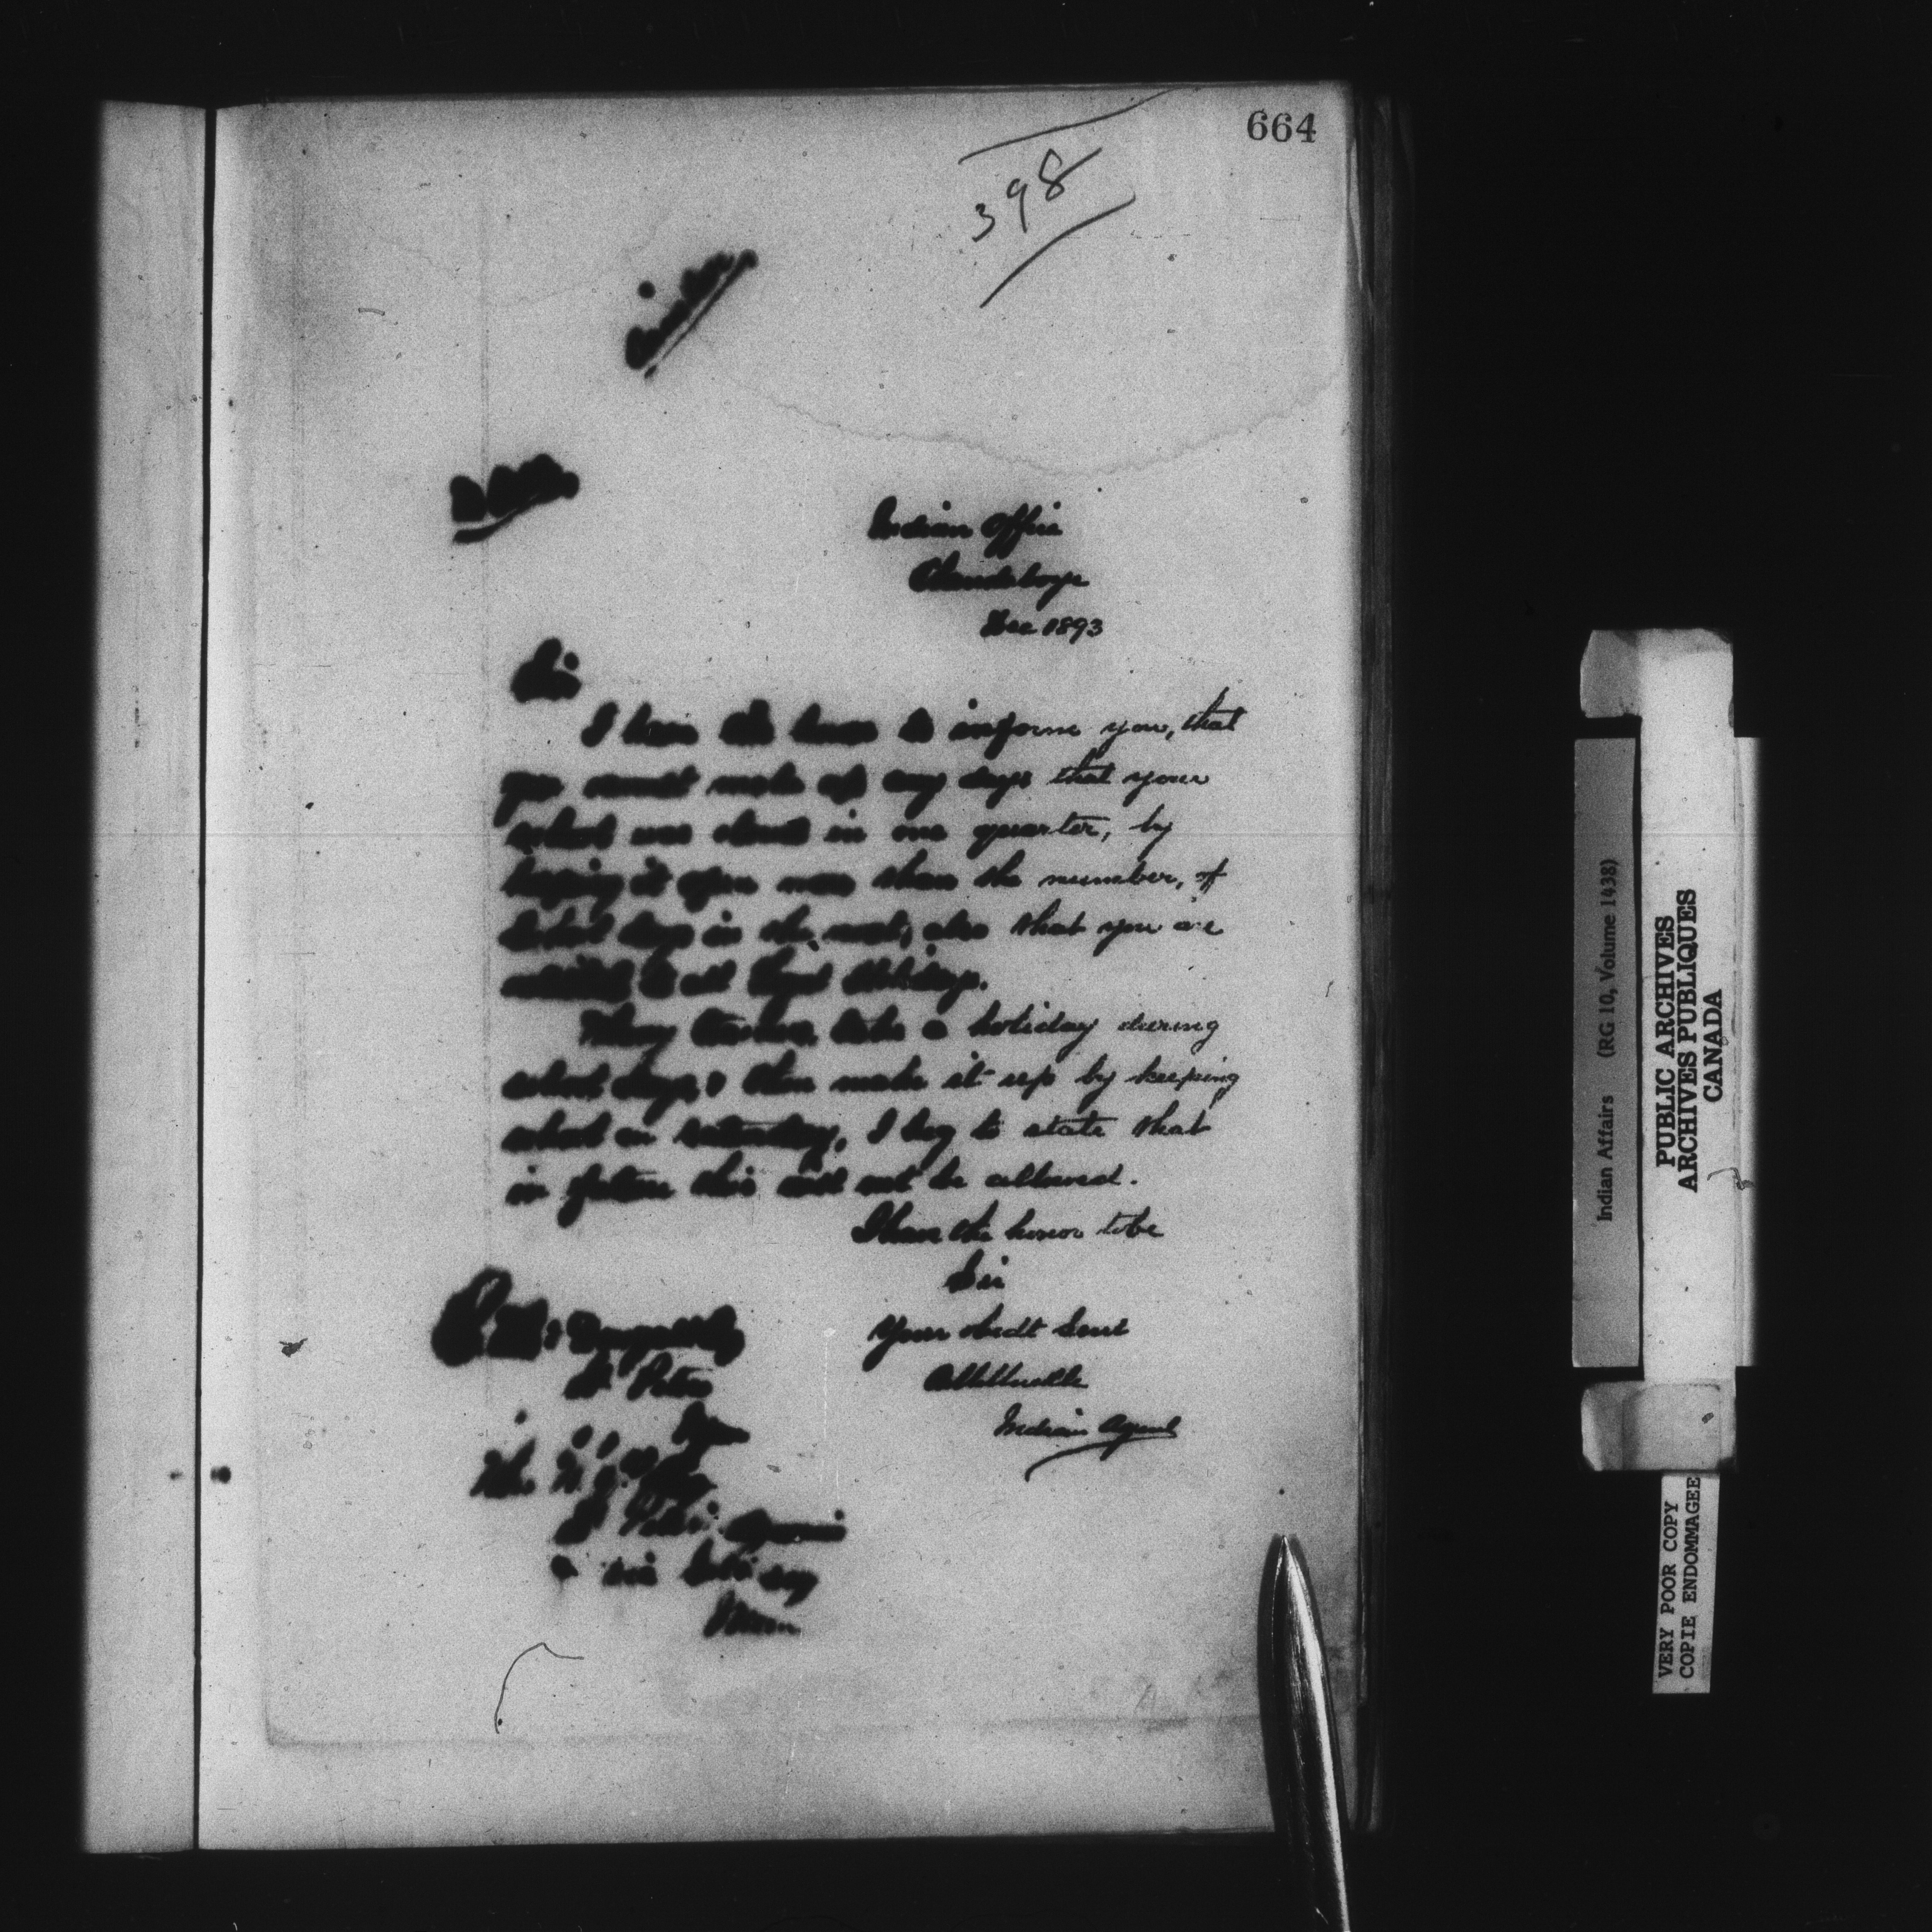 664
398
Indian Office
Clandeboye
Dec 1893
Sir
I have the honor to inform you, that
you cannot make up any days that your
school was closed in one quarter, by
keeping it open more than the number, of
school days in the next, also that you are
entitled to all legal Holidays.
Many teachers take a holiday during
school days, & then make it up by keeping
school on Saturday, I beg to state that
in future this will not be allowed.
I have the honor to be
Sir
Your obedt Servt
Indian Agent
St Peters
St Peters
Indian Affairs (RG 10, Volume 1438)
PUBLIC ARCHIVES
ARCHIVES PUBLIQUES
CANADA
VERY POOR COPY
COPIE ENDOMMAGEE